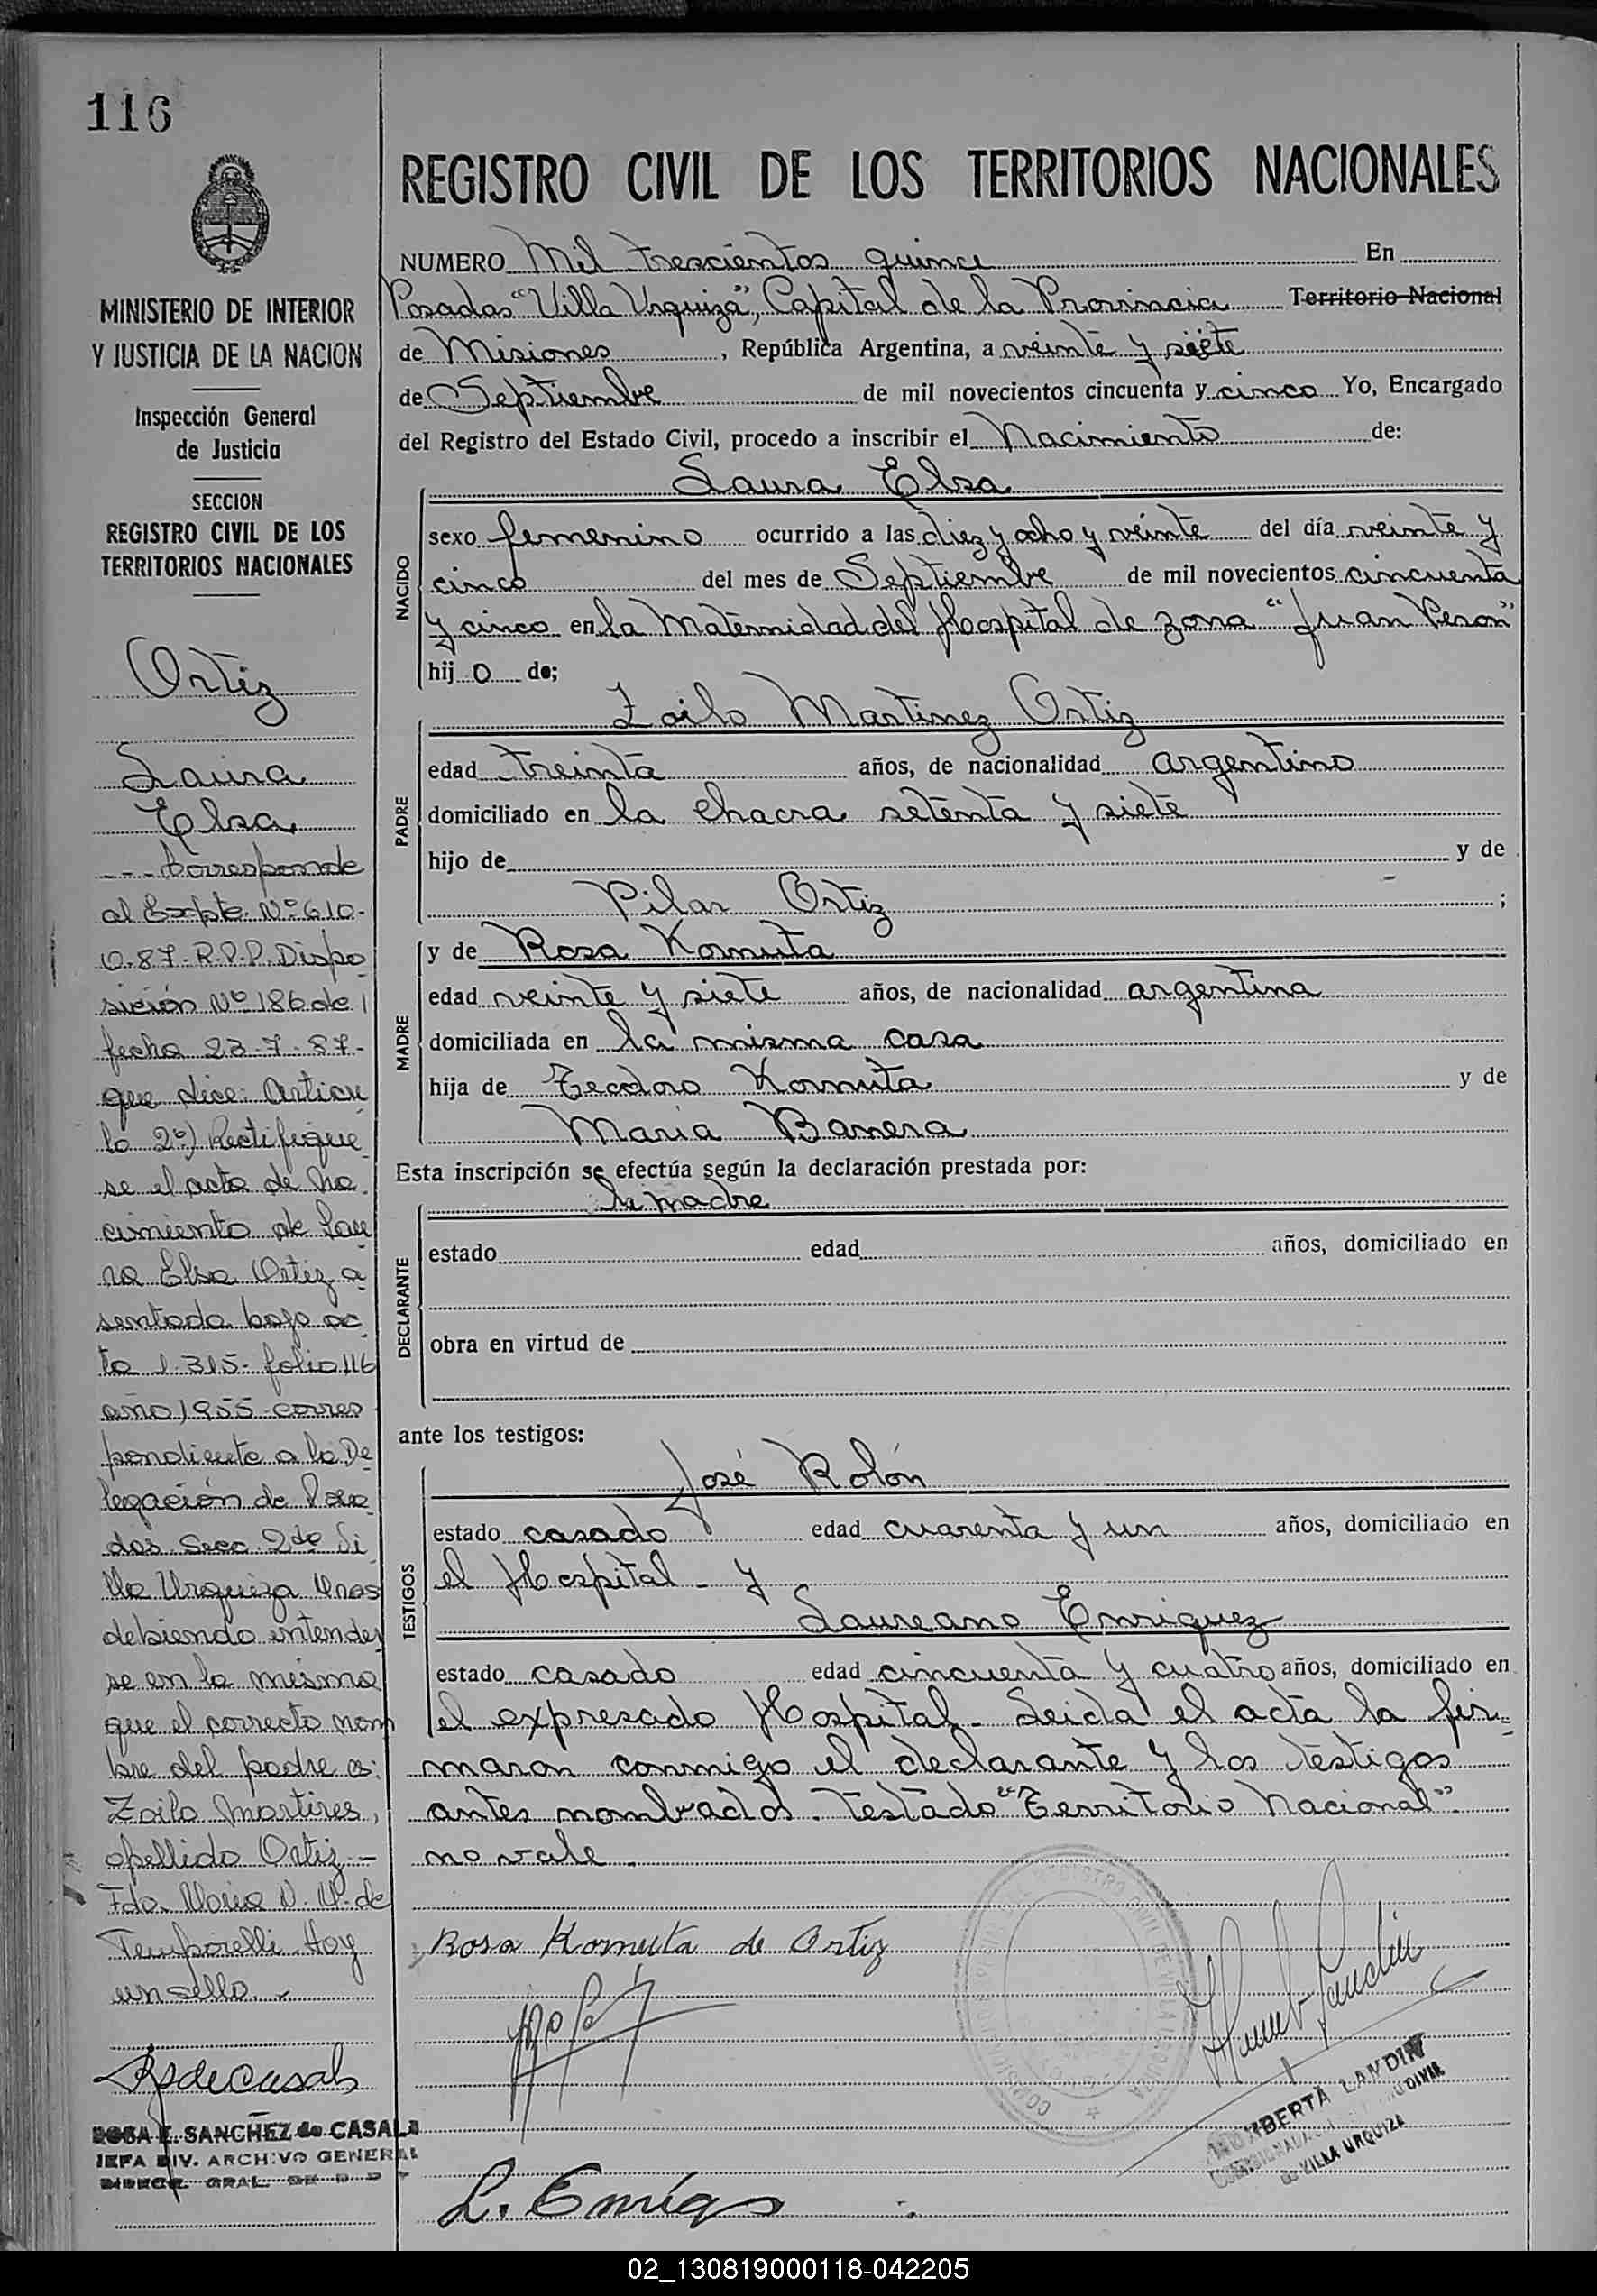 116
MINISTERIO DE INTERIOR
Y JUSTICIA DE LA NACION
Inspección General
de Justicia
SECCION
REGISTRO CIVIL DE LOS
TERRITORIOS NACIONALES
Ortiz
Laura
Elsa
--- Corresponde
al Expte. Nº 610-
O-87-R.P.P. Dispo
sición Nº 186 de
fecha 23-7-87-
que dice: Artícu
lo 2º) Rectifique
se el acta de na
cimiento de Lau
ra Elsa Ortiz a
sentada bajo ac
ta 1.315- folio 116
año 1955-corres
pondiente a la De
legación de Posa
das Secc. 2da Vi
lla Urquiza Mnes
debiendo entender
se en la misma
que el correcto nom
bre del padre es:
Zoilo Martires,
apellido Ortiz-
Fdo. Maria N. M. de
Temporelli. Hay
un sello.-
ROSA E. SANCHEZ de CASALS
JEFA DIV. ARCHIVO GENERAL
DIRECC. GRAL. DE R P P
REGISTRO CIVIL DE LOS TERRITORIOS NACIONALES
NUMERO Mil trescientos quince En
Posadas "Villa Urquiza", Capital de la Provincia Territorio Nacional
de Misiones, República Argentina, a veinte y siete
de Septiembre de mil novecientos cincuenta y cinco Yo, Encargado
del Registro del Estado Civil, procedo a inscribir el Nacimiento de:
Laura Elsa
NACIDO
sexo femenino ocurrido a las diez y ocho y veinte del día veinte y
cinco del mes de Septiembre de mil novecientos cincuenta
y cinco en la Maternidad del Hospital de zona "Juan Peron"
hij o de;
Zoilo Martinez Ortiz
PADRE
edad treinta años, de nacionalidad argentino
domiciliado en la chacra setenta y siete
hijo de y de
Pilar Ortiz ;
y de Rosa Kornuta
MADRE
edad veinte y siete años, de nacionalidad argentina
domiciliada en la misma casa
hija de Teodoro Kornuta y de
Maria Banera
Esta inscripción se efectúa según la declaración prestada por:
la madre
DECLARANTE
estado edad años, domiciliado en
obra en virtud de
ante los testigos:
José Rolón
TESTIGOS
estado casado edad cuarenta y un años, domiciliado en
el Hospital - y
Laureano Enriquez
estado casado edad cincuenta y cuatro años, domiciliado en
el expresado Hospital- Leida el acta la fir=
maron conmigo el declarante y los testigos
antes nombrados. Testado "Territorio Nacional".
no vale.
Rosa Kornuta de Ortiz
HUMBERTA LANDIN
de VILLA URQUIZA
L. Enriqz
02_130819000118-042205